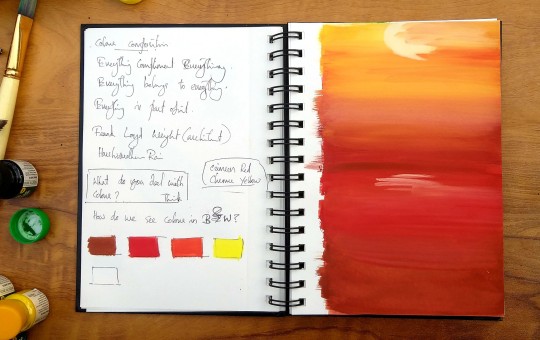 Colour composition
Everything Compliment Everything.
Everything belongs to everything.
Everything is part of it.
Frank Loyd Wright (architect)
Rai
Crimson Red
Chrome Yellow
What do you deal with
Colour? Think
How do we see colour in B&W?